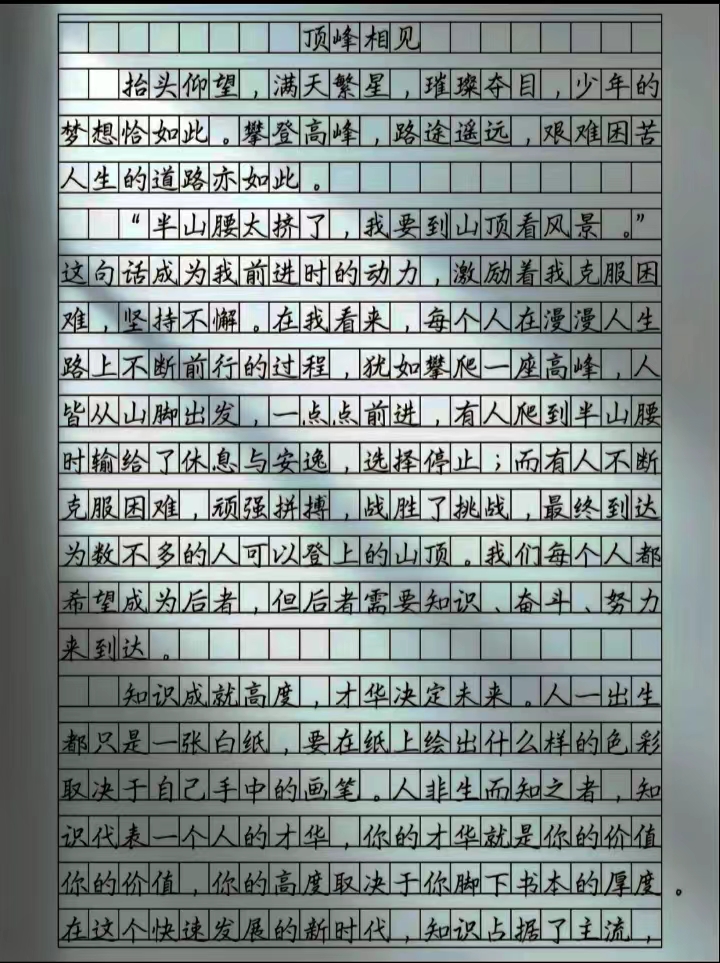 顶峰相见
抬头仰望，满天繁星，璀璨夺目，少年的
梦想恰如此。攀登高峰，路途遥远，艰难困苦
人生的道路亦如此。
“半山腰太挤了，我要到山顶看风景。”
这句话成为我前进时的动力，激励着我克服困
难，坚持不懈。在我看来，每个人在漫漫人生
路上不断前行的过程，犹如攀爬一座高峰，人
皆从山脚出发，一点点前进，有人爬到半山腰
时输给了休息与安逸，选择停止；而有人不断
克服困难，顽强拼搏，战胜了挑战，最终到达
为数不多的人可以登上的山顶。我们每个人都
希望成为后者，但后者需要知识、奋斗、努力
来到达。
知识成就高度，才华决定未来。人一出生
都只是一张白纸，要在纸上绘出什么样的色彩
取决于自己手中的画笔。人非生而知之者，知
识代表一个人的才华，你的才华就是你的价值
你的价值，你的高度取决于你脚下书本的厚度。
在这个快速发展的新时代，知识占据了主流，